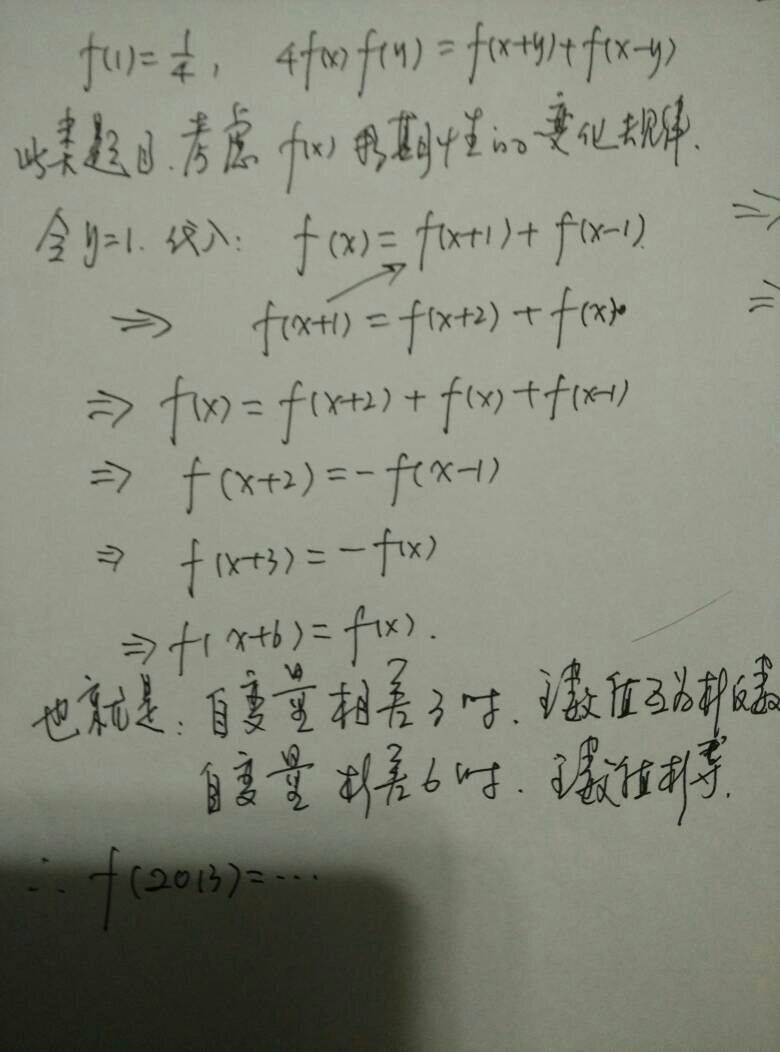 f(1)=1/4, 4f(x)f(y)=f(x+y)+f(x-y)
此类题目.考虑 f(x) 周期性的变化规律.
令y=1.代入: f(x)=f(x+1)+f(x-1). ⇒
⇒ f(x+1)=f(x+2)+f(x). ⇒
⇒ f(x)=f(x+2)+f(x)+f(x-1)
⇒ f(x+2)=-f(x-1)
⇒ f(x+3)=-f(x)
⇒ f(x+6)=f(x).
也就是:自变量相差3时.函数值互为相反数
自变量相差6时.函数值相等.
∴ f(2013)=…